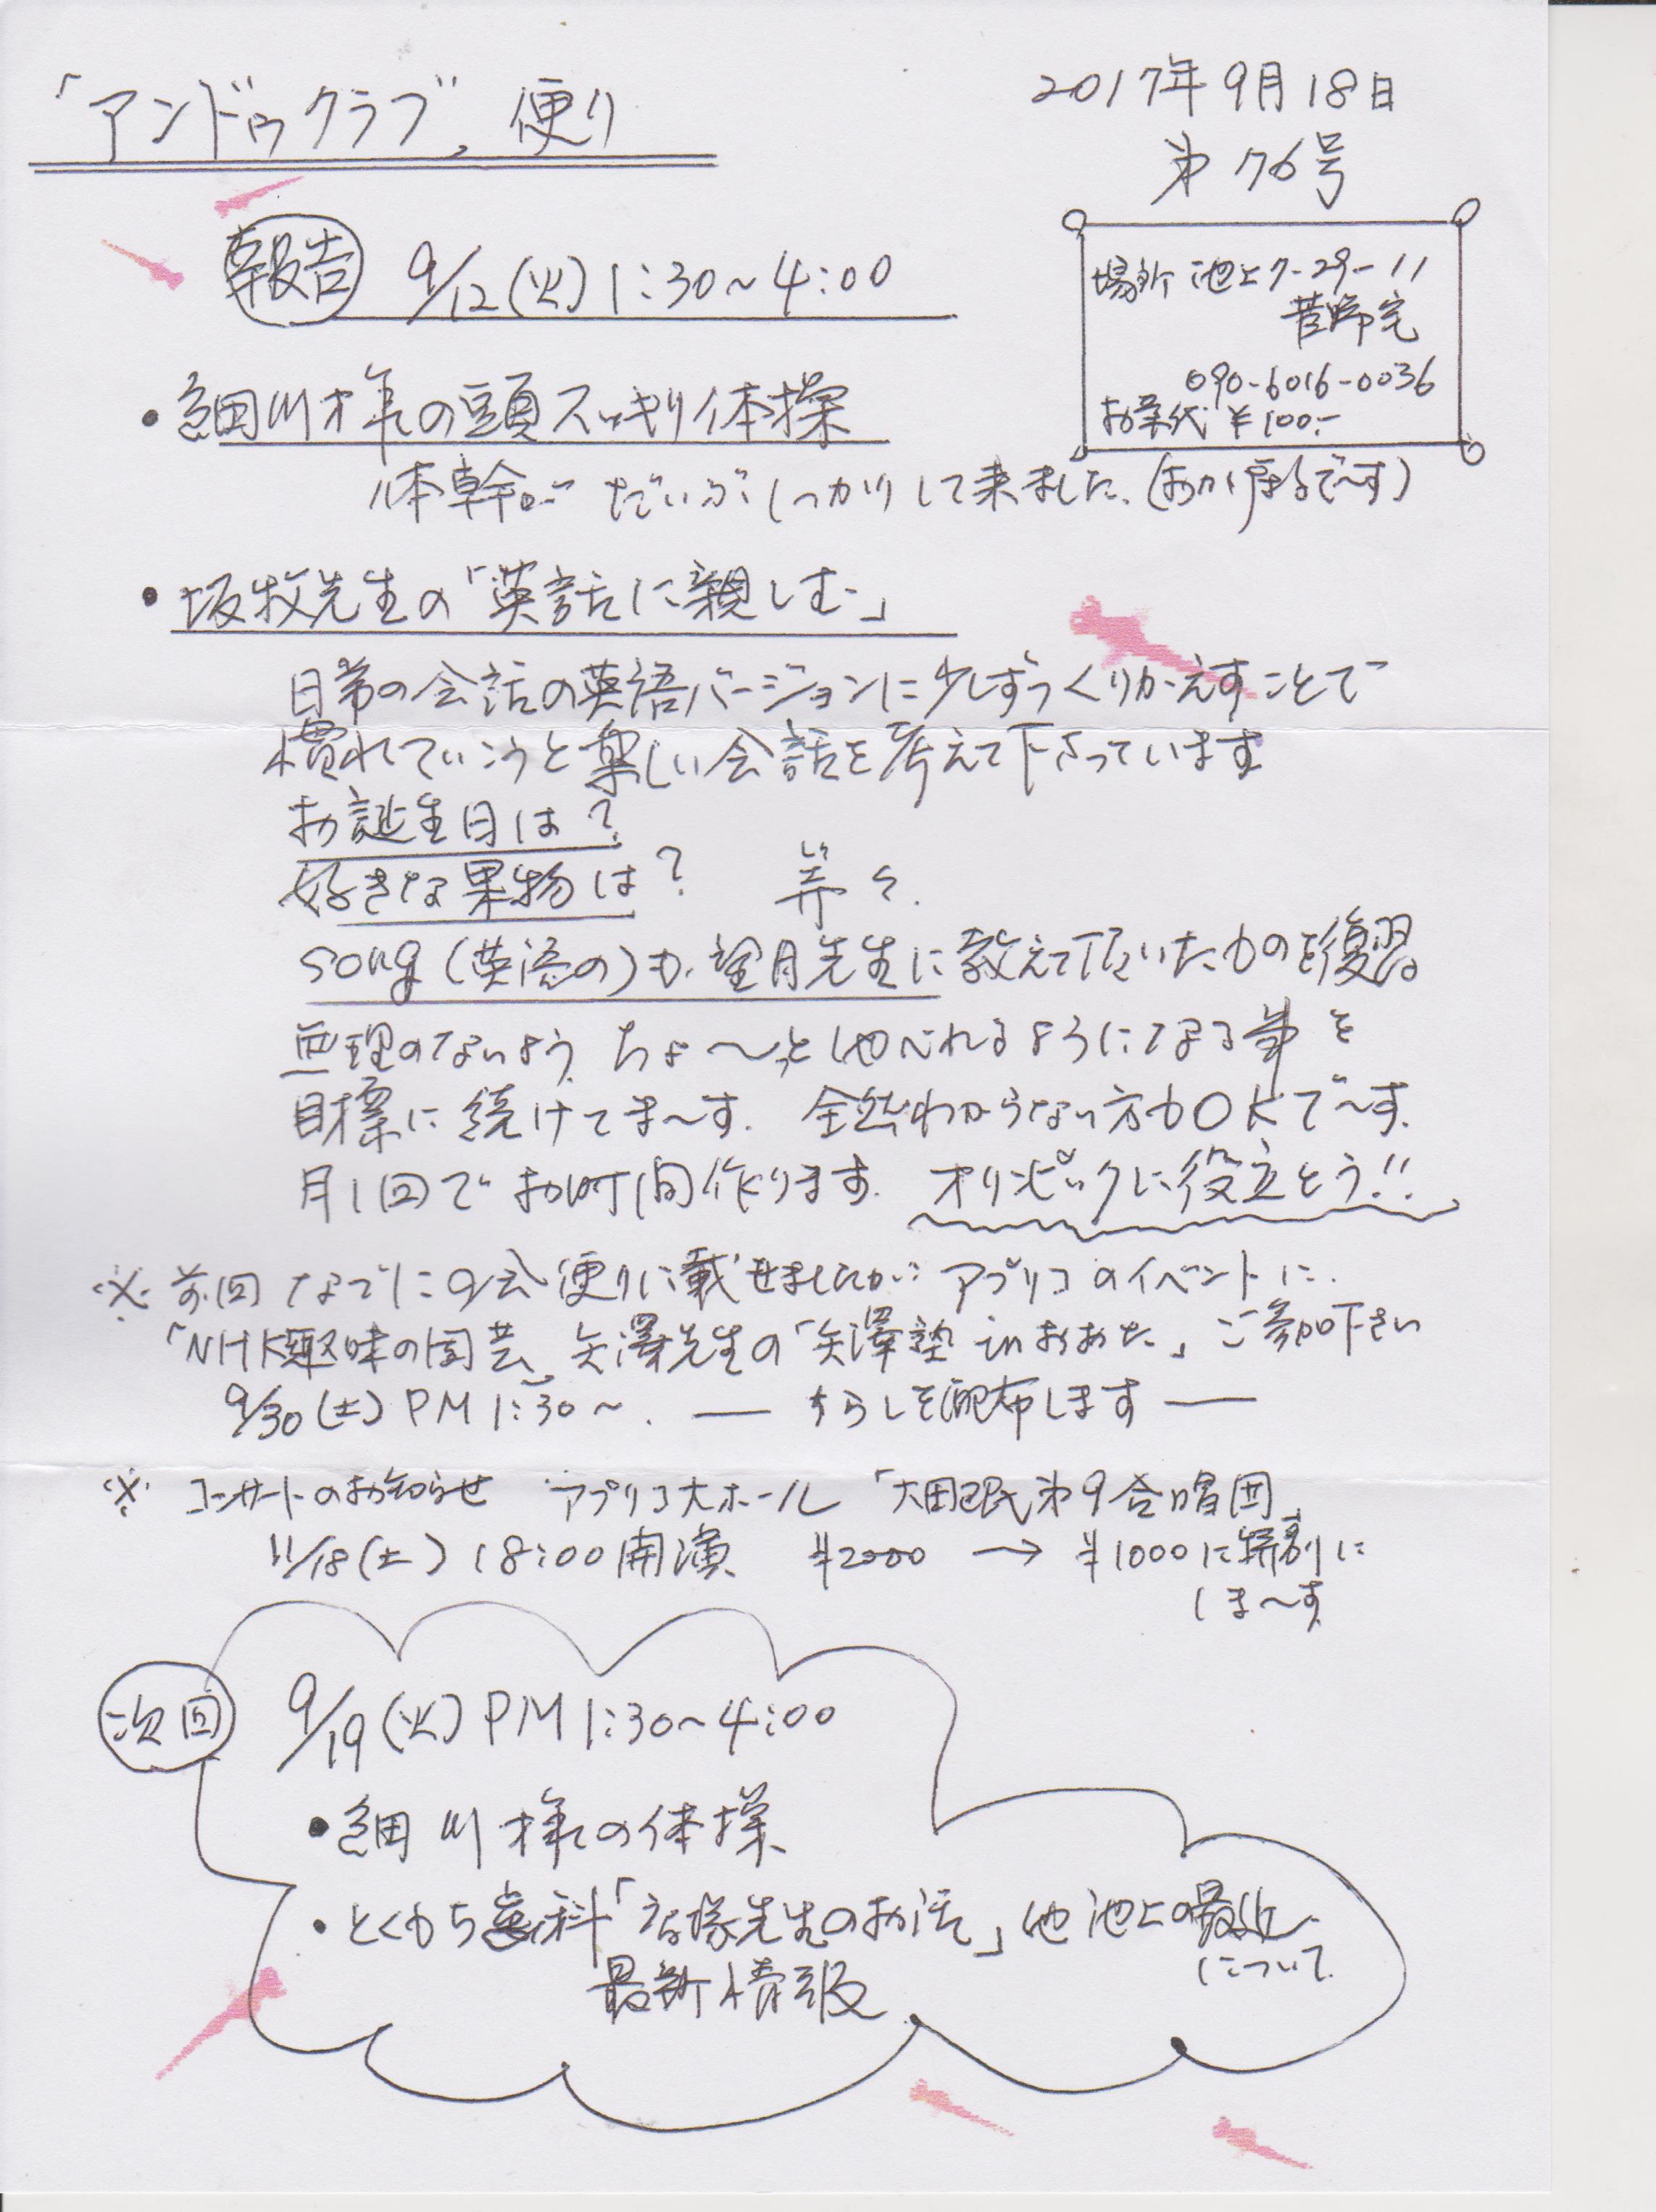 「アンドゥクラブ」便り
2017年9月18日
第76号
場所 池上7-29-11
菅野宅
090-6016-0036
お菓代 ¥100.-
報告 9/12(火)1:30~4:00
・細川様の頭スッキリ体操
体幹がだいぶしっかりして来ました。(おかげ様で~す)
・坂牧先生の「英話に親しむ」
日常の会話の英語バージョンに少しずつくりかえすことで
慣れていこうと楽しい会話を考えて下さっています
お誕生日は?
好きな果物は? 等々.
song(英語の)も、望月先生に教えて頂いたものを復習
無理のないよう、ちょ~っと しゃべれるようになる事を
目標に続けてま~す. 全然わからない方もOKで~す.
月1回でお時間作ります. オリンピックに役立とう!!
※前回なでしこの会便りに載せましたが アプリコのイベントに.
「NHK趣味の園芸」矢澤先生の「矢澤塾 in おおた」ご参加下さい
9/30(土)PM1:30~. ― ちらしを配布します ―
※ コンサートのお知らせ アプリコ大ホール「大田区民第9合唱団」
11/18(土)18:00開演 ¥2000 → ¥1000に特割に
しま~す
次回 9/19(火)PM1:30~4:00
・細川様の体操
・とくもち歯科「 先生のお話」他 池上の最近
について
最新情報